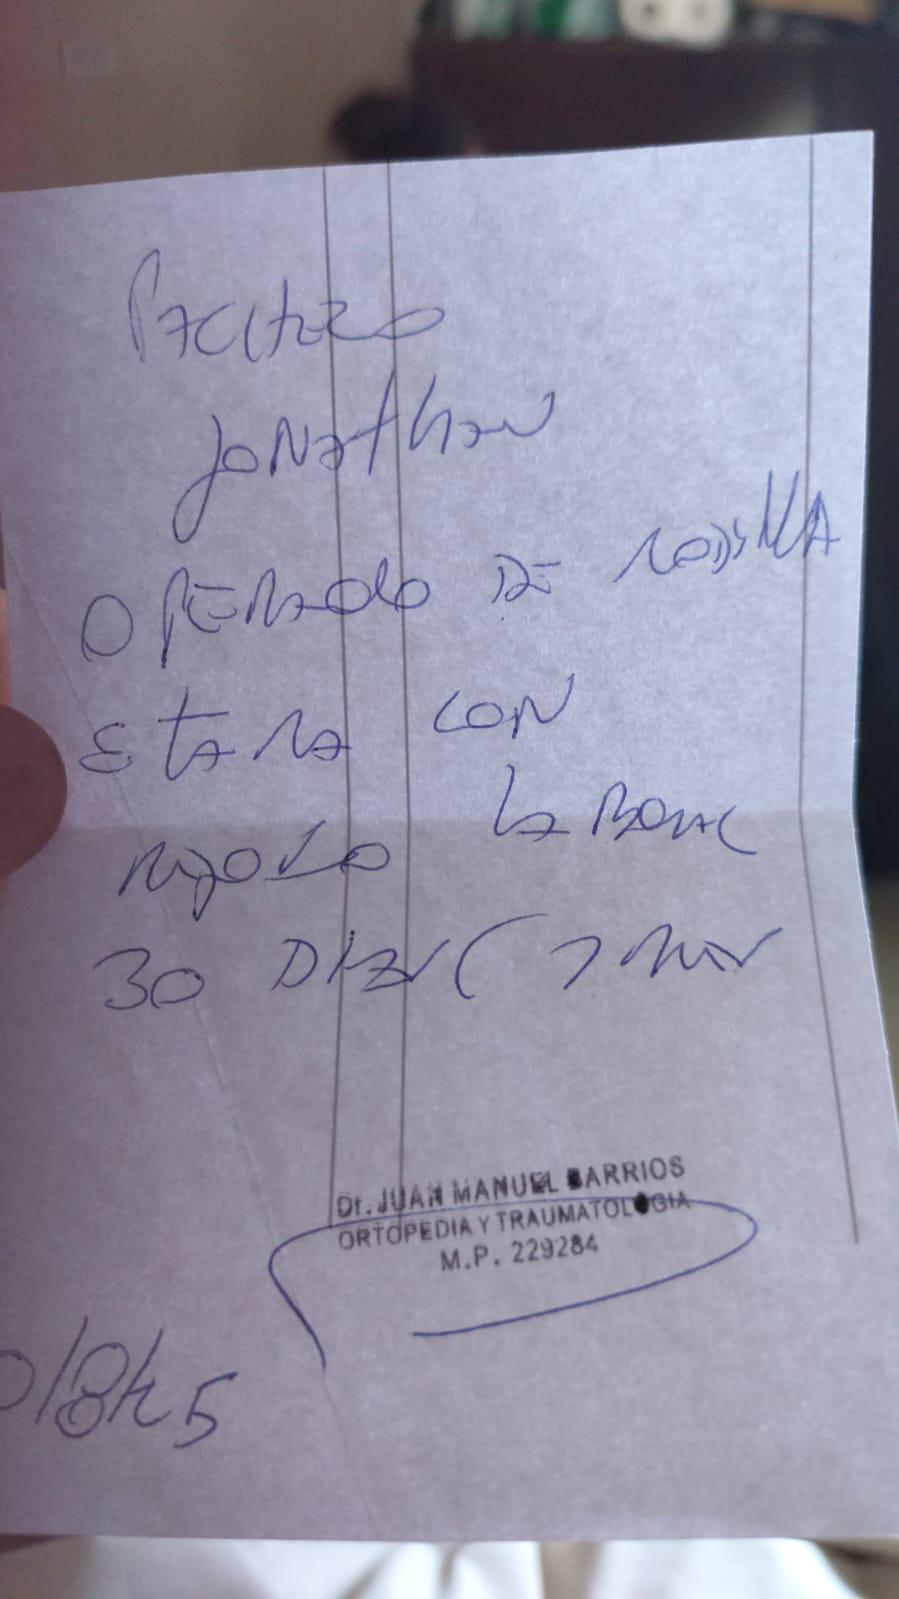 PACHECO
Jonathan
OPERADO DE RODILLA
ETARA CON
REPOSO LABORAL
30 DIAS (
Dr. JUAN MANUEL BARRIOS
ORTOPEDIA Y TRAUMATOLOGIA
M.P. 229284
/8/25